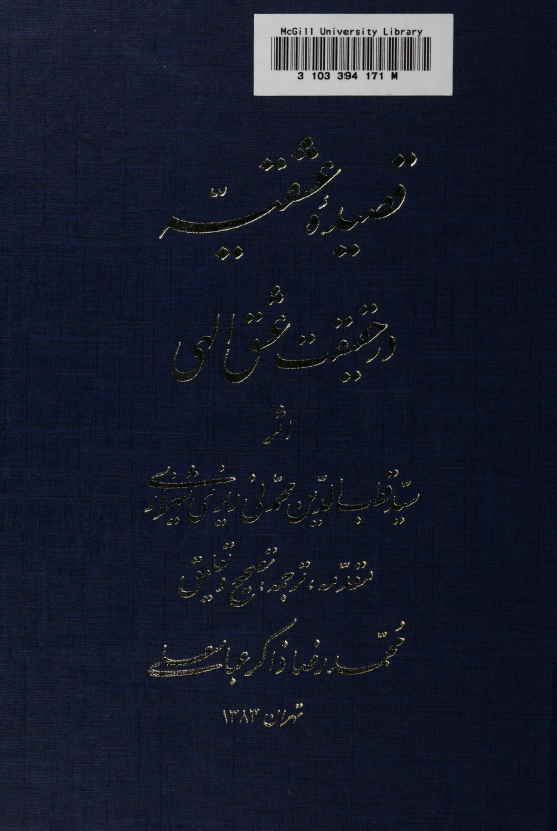 McGill University Library
3 103 394 171 M
قصیدهٔ عشقیّه
در حقیقت عشق الهی
اثر
سیّد قطب الدّین محمّد نی ریزی شیرازی
مقدّمه ، ترجمه ، تصحیح و تعلیق
محمّد رضا ذاکر عباسعلی
تهران ۱۳۸۳